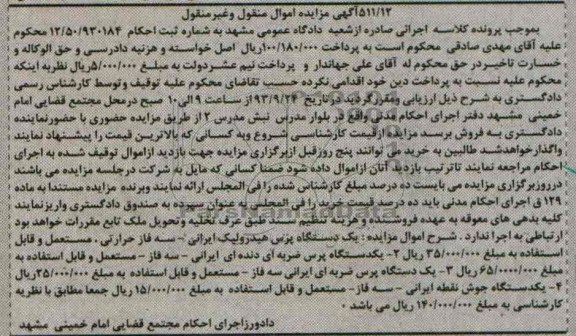 ۵۱۱/۱۲آگهی مزایده اموال منقول وغیرمنقول
بموجب پرونده کلاسه اجرائی صادره ازشعبه دادگاه عمومی مشهد به شماره ثبت احکام ۱۳/۵۰/۹۳۰۱۸۴ محکوم
علیه آقای مهدی صادقی محکوم است به پرداخت ۱۰۰/۱۸۰/۰۰۰ریال اصل خواسته و هزینه دادرسی و حق الوکاله و
خسارت تاخیردر حق محکوم له آقای علی جهاندار و پرداخت نیم عشردولت به مبلغ ۵/۰۰۰/۰۰۰ریال نظربه اینکه
محکوم علیه نسبت به پرداخت دین خود اقدامی نکرده حسب تقاضای محکوم علیه توقیف وتوسط کارشناس رسمی
دادگستری به شرح ذیل ارزیابی ومقررگردید درتاریخ ۹۳/۹/۲۴ از ساعت ۹ الی ۱۰ صبح درمحل مجتمع قضایی امام
خمینی مشهد دفتر اجرای احکام مدنی واقع در بلوار مدرس نبش مدرس ۲ از طریق مزایده حضوری با حضورنماینده
دادگستری به فروش برسد مزایده ازقیمت کارشناسی شروع وبه کسانی که بالاترین قیمت را پیشنهاد نمایند
واگذارخواهدشد طالبین به خرید می توانند پنج روزقبل ازبرگزاری مزایده جهت بازدید ازاموال توقیف شده به اجرای
احکام مراجعه نمایند تاترتیب بازدید آنان ازاموال داده شود ضمنا کسانی که مایل به شرکت درجلسه مزایده می باشند
درروزبرگزاری مزایده می بایست ده درصد مبلغ کارشناس شده را فی المجلس ارائه نمایند وبرنده مزایده مستندا به ماده
۱۲۹ ق اجرای احکام مدنی باید ده درصد قیمت خرید را فی المجلس به عنوان سپرده به صندوق دادگستری واریزنمایند
کلیه بدهی های معوقه به عهده فروشنده و هزینه تنظیم سند طبق عرف تخلیه وتحویل ملک تابع مقررات خواهد بود
ارتباطی به اجرا ندارد . شرح اموال مزایده : یک دستگاه پرس هیدرولیک ایرانی - سه فاز حرارتی . مستعمل و قابل
استفاده به مبلغ ۳۵/۰۰۰/۰۰۰ ریال ۲- یکدستگاه پرس ضربه ای دنده ای ایرانی - سه فاز - مستعمل و قابل استفاده به
مبلغ ۶۵/۰۰۰/۰۰۰ ریال ۳- یک دستگاه پرس ضربه ای ایرانی سه فاز - مستعمل و قابل استفاده به مبلغ ۲۵/۰۰۰/۰۰۰ریال
۴- یکدستگاه جوش نقطه ایرانی - سه فاز - مستعمل و قابل استفاده به مبلغ ۱۵/۰۰۰/۰۰۰ ریال جمعا مطابق با نظریه
کارشناسی به مبلغ ۱۴۰/۰۰۰/۰۰۰ ریال می باشد .
دادورزاجرای احکام مجتمع قضایی امام خمینی مشهد